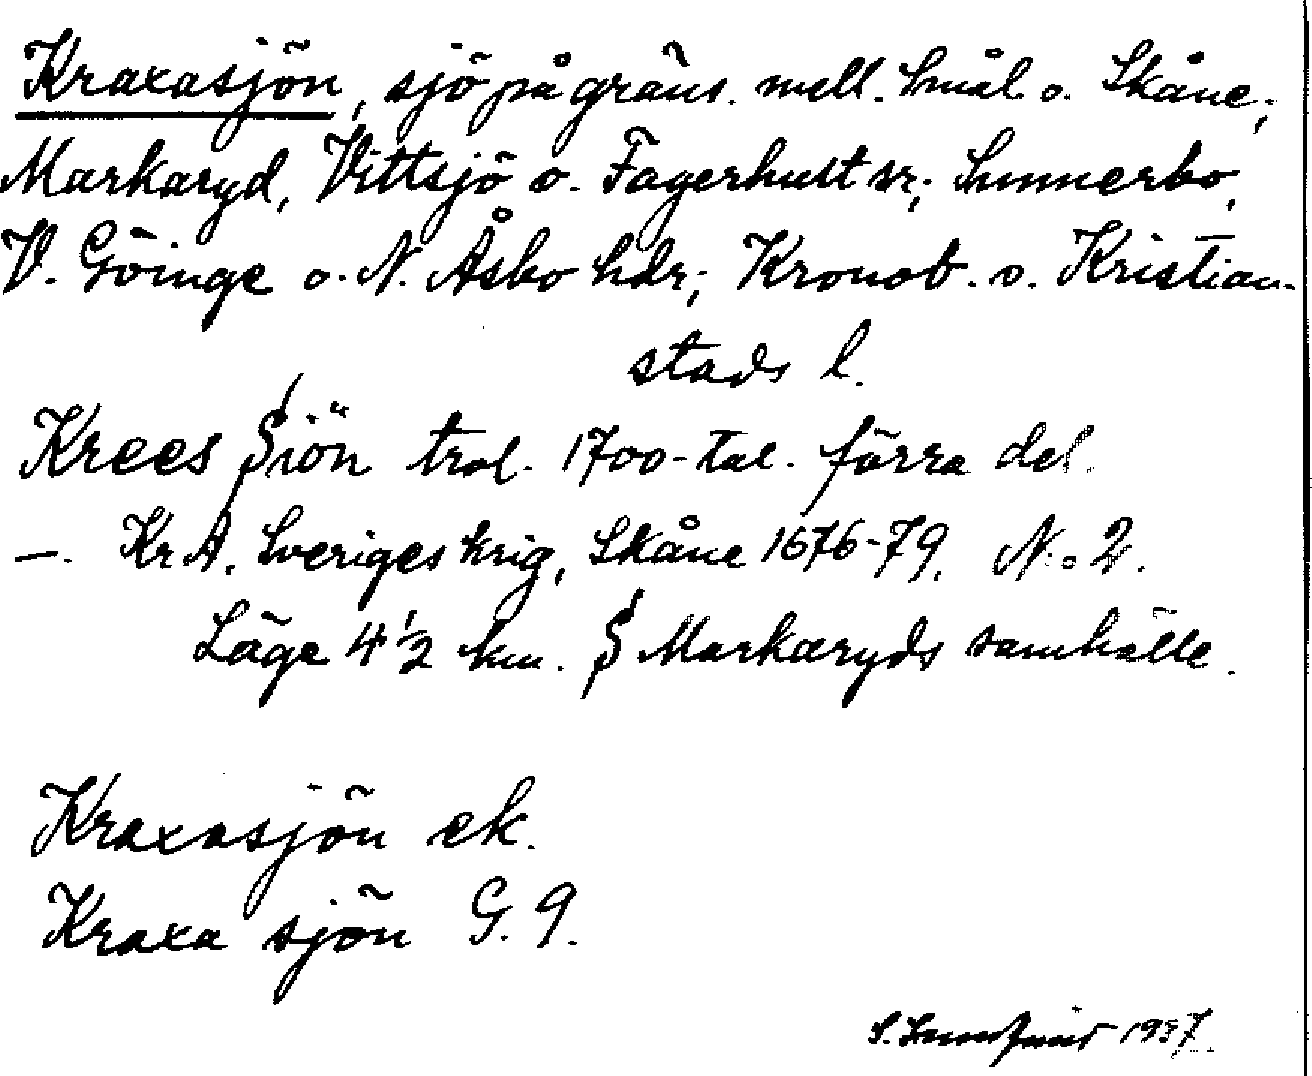 Kraxasjön, sjö på gräns. mell. Smål. o. Skåne;
Markaryd, Vittsjö o. Fagerhult sr; Sunnerbo,
V. Göinge o. N. Åsbo hdr; Kronob. o. Kristian-
stads l.
Krees Siön trol. 1700-tal. förra del.
—. Kr A. Sveriges krig, Skåne 1676-79. N:o 2.
Läge 4 1/2 km. S Markaryds samhälle.
Kraxasjön ek.
Kraxa sjön G. 9.
S. 1937